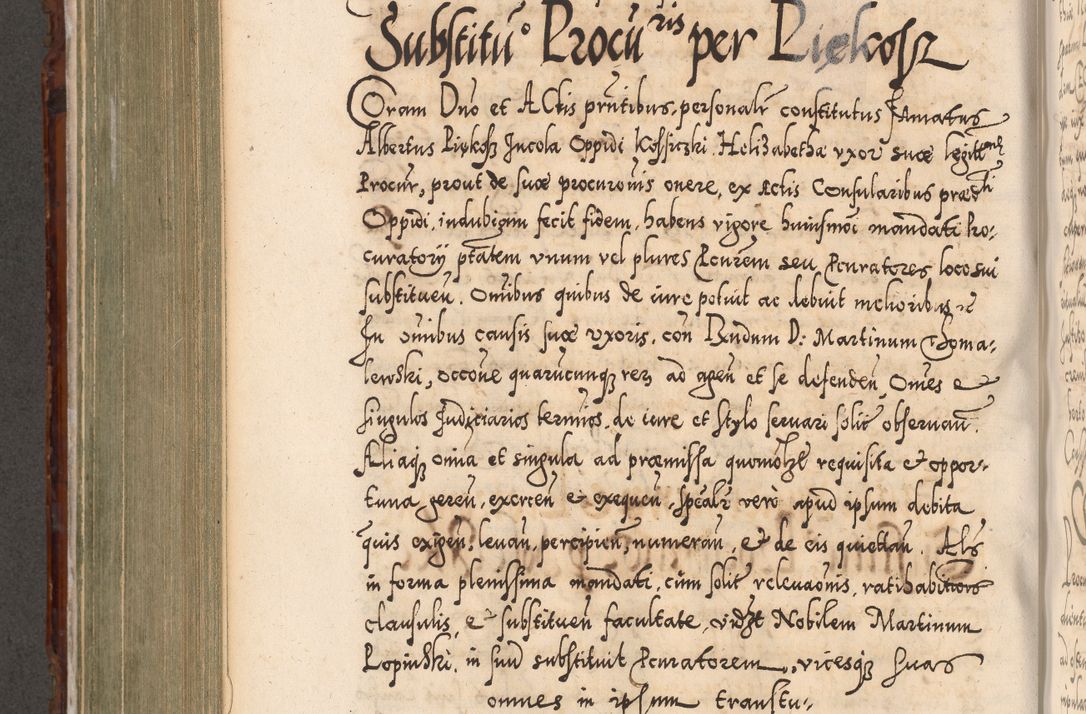 Substitu͂o Procu͂ris per Piękosz
Coram Dno et Actis prn̄tibus, personalr̄ constitutus Famatus
Albertus Piękosz Incola Oppidi Kossiczki Helizabetha uxor suæ legitt
Procur, prout de suæ procurōnis onere, ex Actis Consularibus præd̄ti
Oppidi, indubiam fecit fidem, habens vigore huiusmōi mandati Pro-
curatorÿ ptātem unum vel plures Pcūrem seu Pcuratores loco sui
substituen̄. Omībus quibus de iure potuit ac debuit melioribus
In omībus causis suæ uxoris, con Rndum D: Martinum Toma-
lewski, occōne quarūcunq̄ rerz ad agen̄ et se defenden̄, Om̄es et
singulos Judiciarios termīos, de iure et Stylo servari solit̄ observan̄.
Aliaq̄ omīa et singula ad præmissa quomōlzt requisita et oppor-
tuna geren̄, exercen̄ et exequen̄, spēalr̄ vero apud ipsum debita
quis exigen̄, levan̄, percipien̄, numeran̄, et de eis quiettan̄. Als
in forma plenissima mandati, cum solit̄ relevaōnis, ratihabitionis
clausulis, et substituen̄ facultate, vidzt Nobilem Martinum
Lopinski, in suū substituit Pcuratorem, vicesq̄ suas
omnes in ipsum transtu-